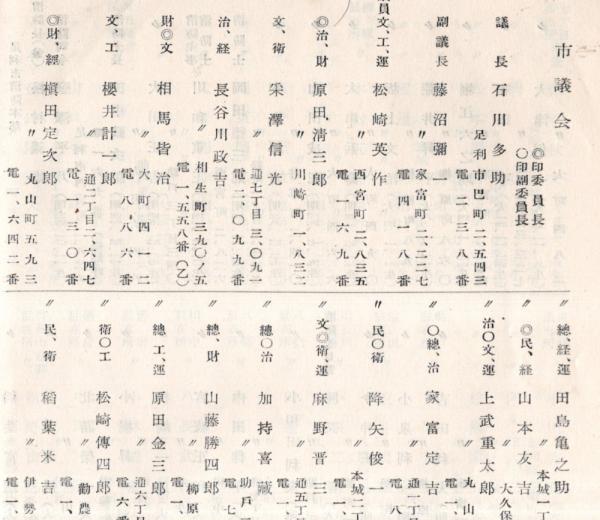 市議会
◎印委員長
〇印副委員長
議長 石川多助
足利市巴町二、五四三
電 二三八番
副議長 藤沼彌一
〃 家富町二、二二七
電 四一八番
員文、工、運 松崎英作
〃 西宮町二、八三五
電 一六九番
◎治、財 原田清三郎
〃 川崎町一、八三二
文、衛 栄澤信光
〃 通七丁目三、〇九一
電 二、〇九九番
治、経 長谷川政吉
〃 相生町三九〇ノ五
電 一、五五八番(乙)
財〇文 相馬皆治
〃 大町四一二
電 八、八六番
文、工 櫻井計一郎
〃 通二丁目二、六四七
電 一、三一〇番
◎財、經 槇田定次郎
〃 丸山町五九三
電 一、六四二番
〃 總、経、運 田島亀之助
〃 本城一丁
電
〃 ◎民、経 山本友吉
〃 大久保
〃 治〇文、運 上武重太郎
〃 丸山
電 一、
〃 〇總、治 家富定吉
〃 通二丁目
電 八
〃 民〇衛 降矢俊一
〃 本城二丁
〃 文◎衛、運 麻野晋一
〃 通五丁目
電 一、
〃 總〇治 加持喜藏
〃 助戸
電 七
〃 總、財 山藤勝四郎
〃 柳原
電 一、
〃 總工、運 原田金三郎
〃 通六丁目
電 六番
〃 衛〇工 松崎傳四郎
〃 勸農
電 一、
〃 民、衛 稲葉米吉
〃 伊勢
電 一、